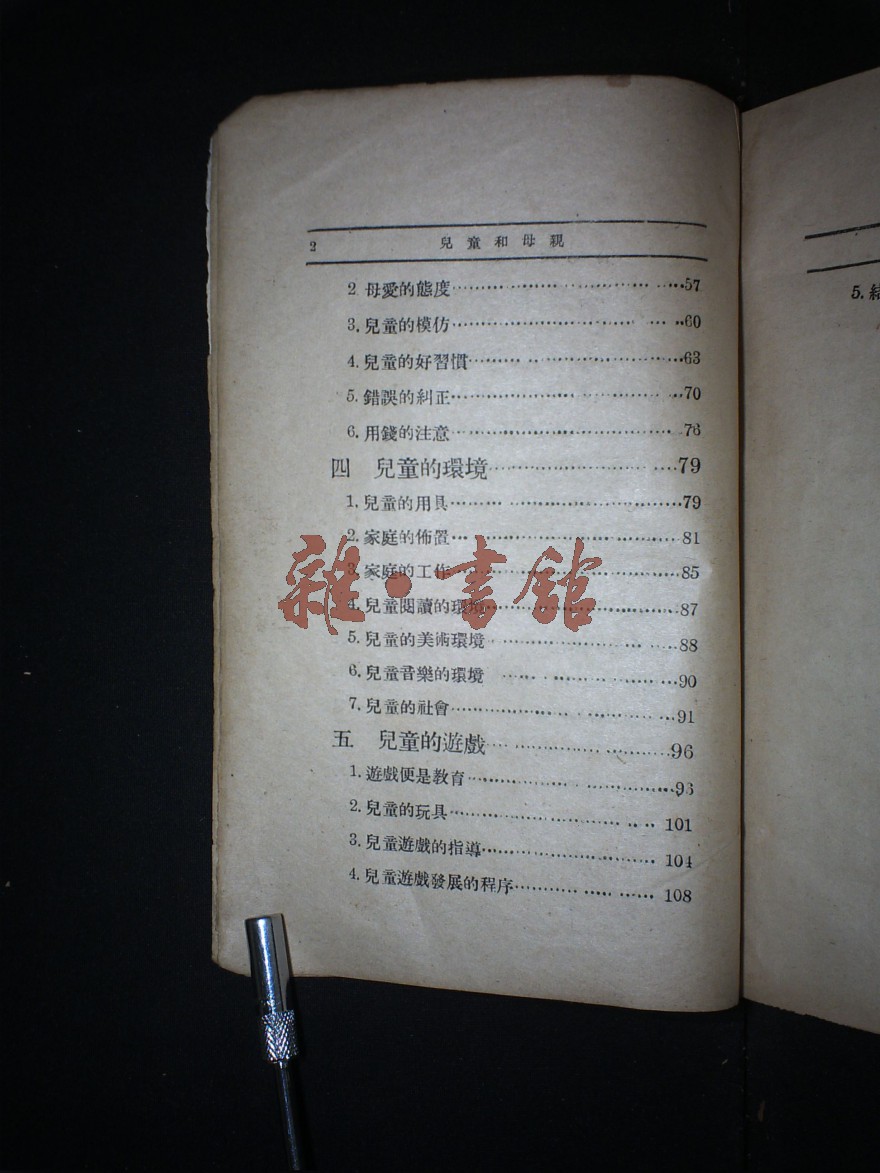 2 兒童和母親
2 母愛的態度 57
3. 兒童的模仿 60
4. 兒童的好習慣 63
5. 錯誤的糾正 70
6. 用錢的注意 76
四 兒童的環境 79
1. 兒童的用具 79
2. 家庭的佈置 81
3. 家庭的工作 85
4. 兒童閱讀的環境 87
5. 兒童的美術環境 88
6. 兒童音樂的環境 90
7. 兒童的社會 91
五 兒童的遊戲 96
1. 遊戲便是教育 96
2. 兒童的玩具 101
3. 兒童遊戲的指導 104
4. 兒童遊戲發展的程序 108
5. 結
雜·書館